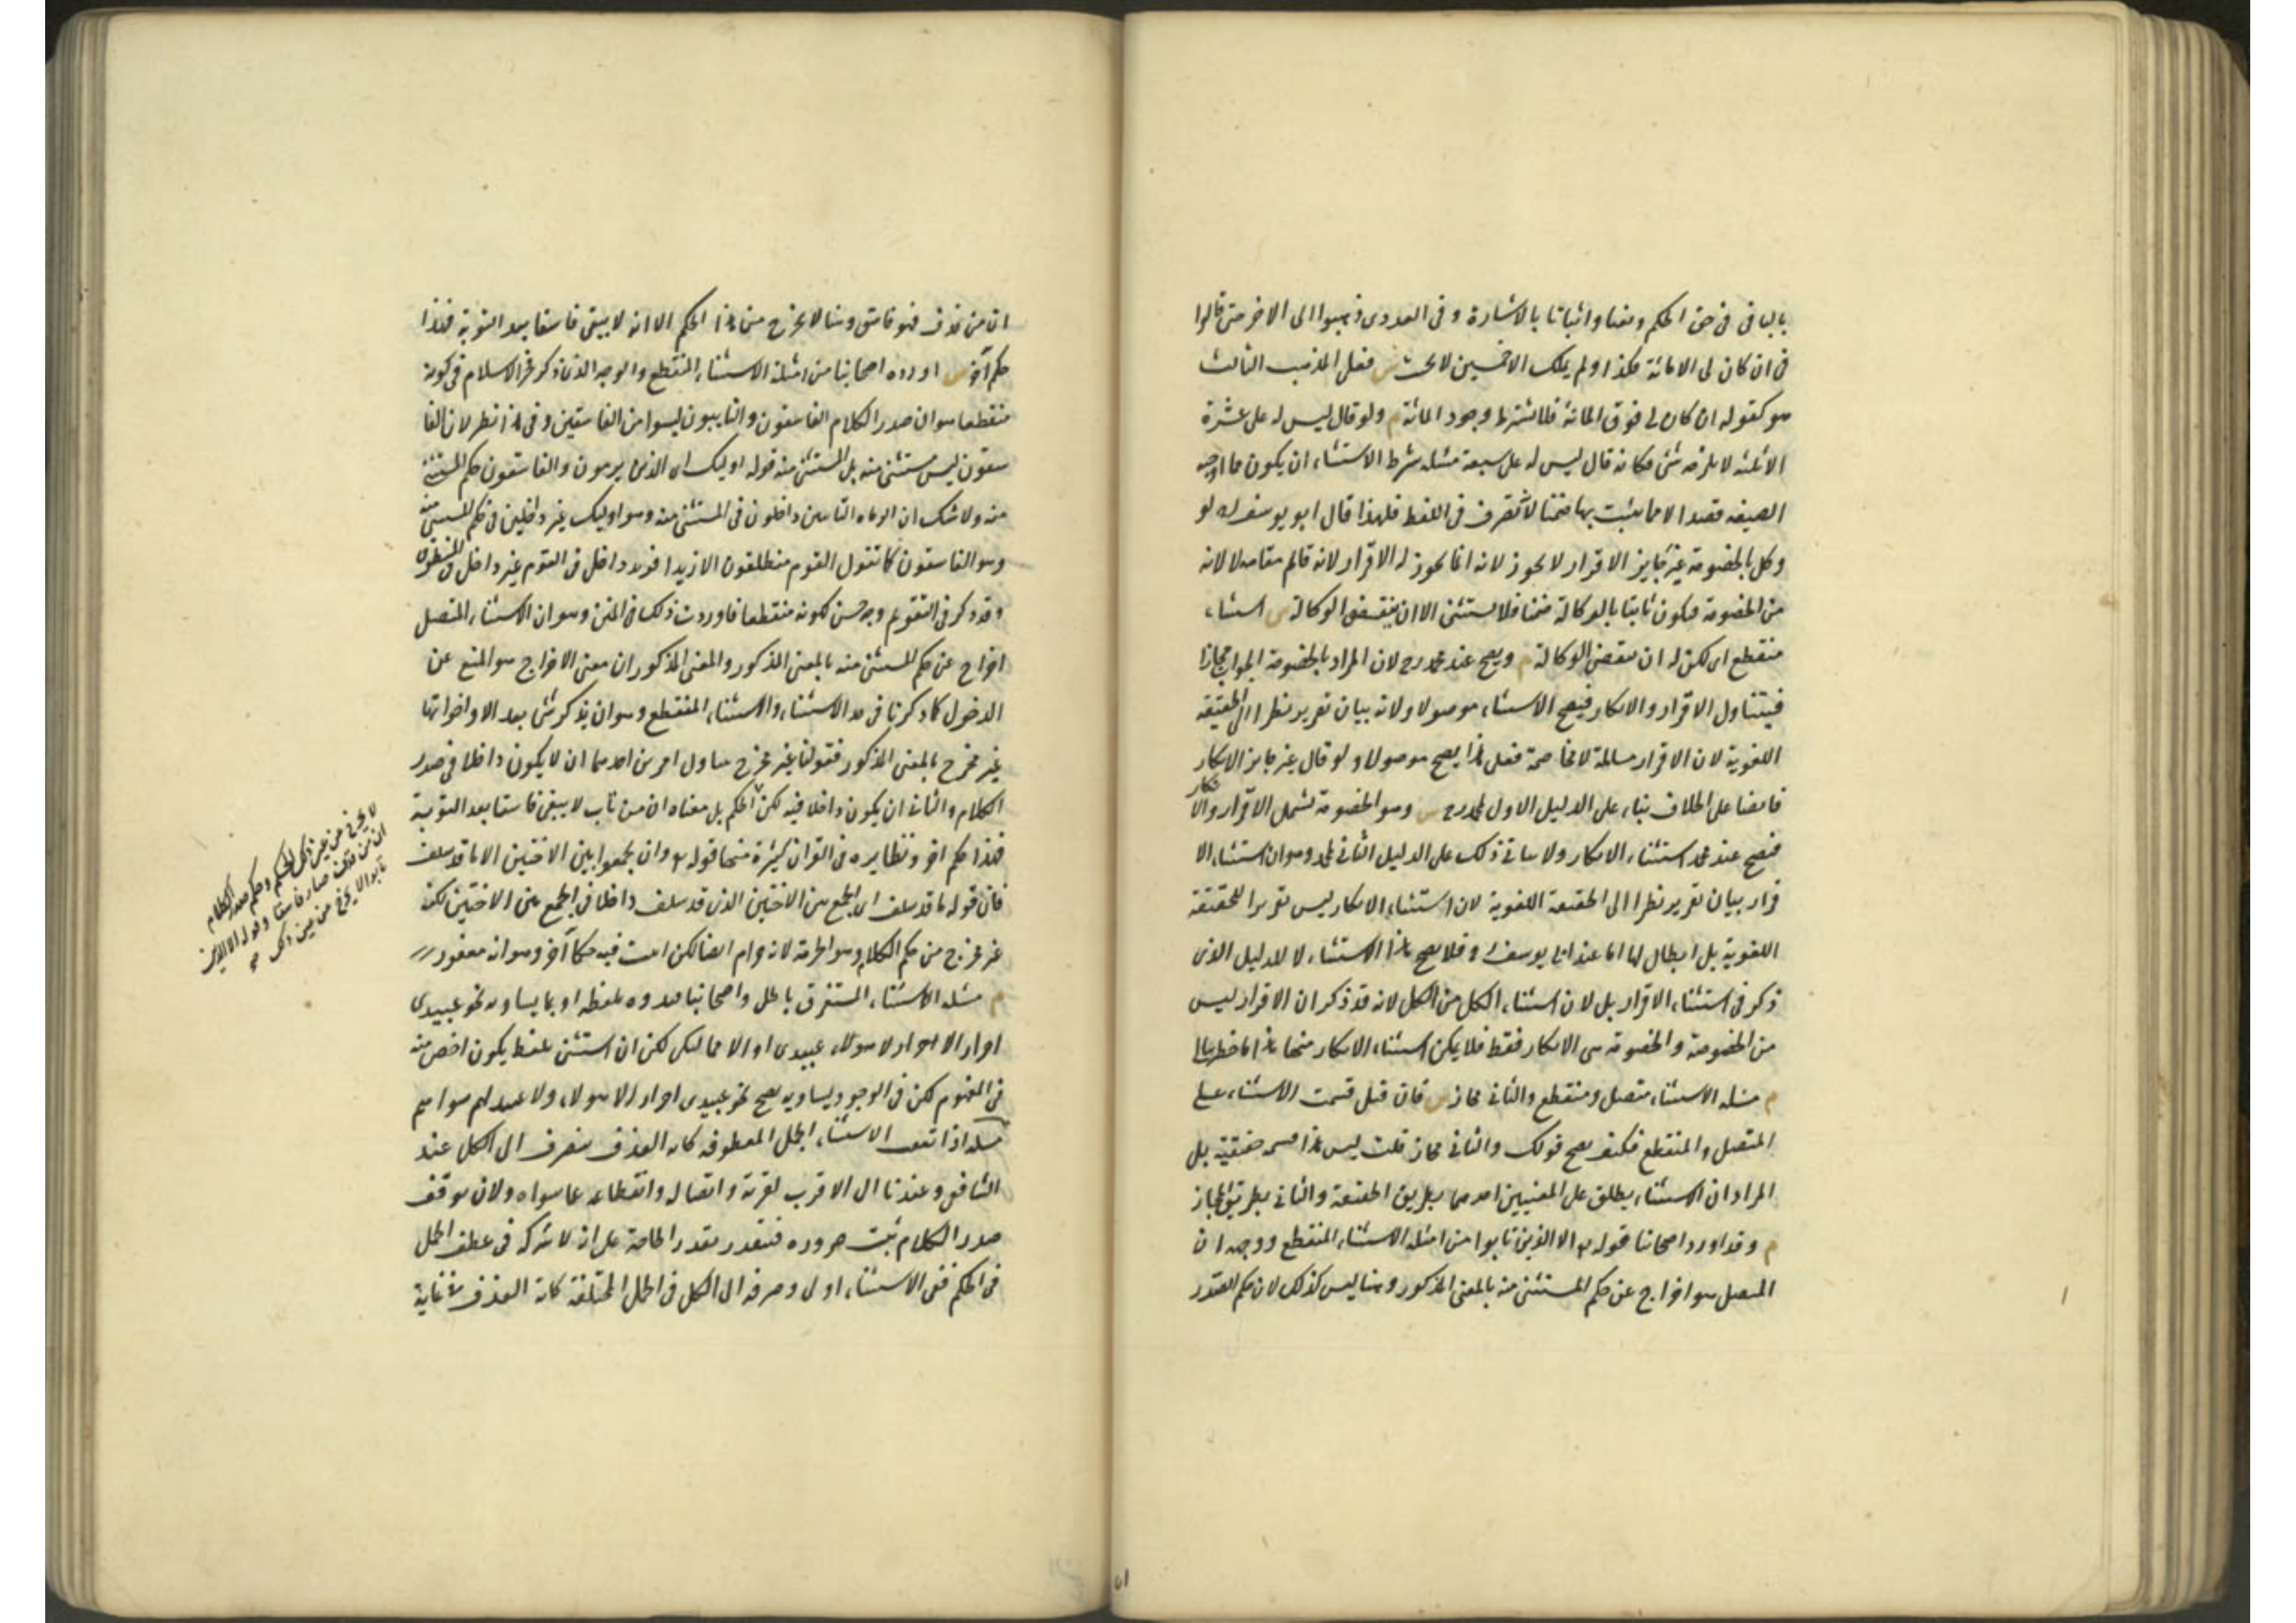 بالباقى فى حق الحكم ونفيا واثباتا بالاشارة وفى العددى ذهبوا الى الاخر حتى قالوا
فى ان كان لى الا مائة فكذا ولم يملك الا خمسين لا يحنث س فعلى المذهب الثالث
هو كقوله ان كان لى فوق المائة فلا يشترط وجود المائة م ولو قال ليس له على عشرة
الا ثلثة لا يلزمه شئ فكانه قال ليس له على سبعة مسئلة شرط الاستثناء ان يكون مما اوجبه
الصيغة قصدا لا مما يثبت بها ضمنا لانه تصرف فى اللفظ فلهذا قال ابو يوسف رح لو
وكل بالخصومة غير جايز الاقرار لا يجوز لانه انما يجوز له الاقرار لانه قائم مقامه لا لانه
من الخصومة فيكون ثابتا بالوكالة ضمنا فلا يستثنى الا ان ينقض الوكالة س استثناء
منقطع اى لكن له ان ينقض الوكالة م ويصح عند محمد رح لان المراد بالخصومة الجواب مجازا
فيتناول الاقرار والانكار فيصح الاستثناء موصولا ولانه بيان تقرير نظرا الى الحقيقة
اللغوية لان الاقرار مسالمة لا مخاصمة فعلى هذا يصح مفصولا ولو قال غير جايز الانكار
فايضا على الخلاف بناء على الدليل الاول لمحمد رح س وهو الخصومة تشمل الاقرار والانكار
فيصح عند محمد استثناء الانكار ولا يتاتى ذلك على الدليل الثانى لمحمد وهو ان استثناء الا
قرار بيان تقرير نظرا الى الحقيقة اللغوية لان استثناء الانكار ليس تقريرا للحقيقة
اللغوية بل ابطال لها اما عند ابى يوسف رح فلا يصح هذا الاستثناء لا للدليل الذى
ذكر فى استثناء الاقرار بل لان استثناء الكل من الكل لانه قد ذكر ان الاقرار ليس
من الخصومة والخصومة هى الانكار فقط فلا يمكن استثناء الانكار منها هذا ما خطر ببالى
م مسئلة الاستثناء متصل ومنقطع والثانى مجاز س فان قيل قسمت الاستثناء على
المتصل والمنقطع فكيف يصح قولك والثانى مجاز قلت ليس هذا قسمة حقيقية بل
المراد ان الاستثناء يطلق على المعنيين احدهما بطريق الحقيقة والثانى بطريق المجاز
م وقد اورد اصحابنا قوله تع الا الذين تابوا من امثلة الاستثناء المنقطع ووجهه ان
المتصل هو اخراج عن حكم المستثنى منه بالمعنى المذكور وهنا ليس كذلك لان حكم الصدر
ان من قذف فهو فاسق وهنا لا يخرج من هذا الحكم الا انه لا يبقى فاسقا بعد التوبة فهذا
حكم آخر س اورده اصحابنا من امثلة الاستثناء المنقطع والوجه الذى ذكر فخر الاسلام فى كونه
منقطعا هو ان صدر الكلام الفاسقون والتايبون ليسوا من الفاسقين وفى هذا نظر لان الفا
سقون ليس مستثنى منه بل المستثنى منه قوله اوليك اى الذين يرمون والفاسقون حكم المستثنى
منه ولا شك ان الرماة التايبين داخلون فى المستثنى منه وهو اوليك غير داخلين فى حكم المستثنى منه
وهو الفاسقون كما تقول القوم منطلقون الا زيدا فزيد داخل فى القوم غير داخل فى المنطلقون
وقد ذكر فى التقويم وجه حسن لكونه منقطعا فاوردت ذلك فى المتن وهو ان الاستثناء المتصل
اخراج عن حكم المستثنى منه بالمعنى المذكور والمعنى المذكور ان معنى الاخراج هو المنع عن
الدخول كما ذكرنا فى حد الاستثناء والاستثناء المنقطع وهو ان يذكر شئ بعد الا واخواتها
غير مخرج بالمعنى المذكور فقولنا غير مخرج يتناول امرين احدهما ان لا يكون داخلا فى صدر
الكلام والثانى ان يكون داخلا فيه لكن الحكم بل معناه ان من تاب لا يبقى فاسقا بعد التوبة
فهذا حكم آخر ونظايره فى القران كثيرة منها قوله تع وان تجمعوا بين الاختين الا ما قد سلف
فان قوله ما قد سلف اى الجمع بين الاختين الذى قد سلف داخل فى الجمع بين الاختين لكنه
غير مخرج من حكم الكلام وهو الحرمة لانه حرام ايضا لكن اثبت فيه حكما آخر وهو انه مغفور
م مسئلة الاستثناء المستغرق باطل واصحابنا قيدوه بلفظه او بما يساويه نحو عبيدى
احرار الا هؤلاء عبيدى او الا مماليكى لكن ان استثنى بلفظ يكون اخص منه
فى المفهوم لكن فى الوجود يساويه يصح نحو عبيدى احرار الا هؤلاء ولا عبيد له سواهم
مسئلة اذا تعقب الاستثناء الجمل المعطوفة كاية القذف ينصرف الى الكل عند
الشافعى وعندنا الى الاقرب لقربه واتصاله وانقطاعه عما سواه ولان توقف
صدر الكلام ثبت ضرورة فيتقدر بقدر الحاجة على انه لا شركة فى عطف الجمل
فى الحكم ففى الاستثناء اولى وصرفه الى الكل فى الجمل المختلفة كاية القذف فى غاية
لا يخرج من عين ذلك الحكم وحكم صدر الكلام
ان من قذف صار فاسقا وقوله الا الذين
تابوا لا يخرج من عين ذلك